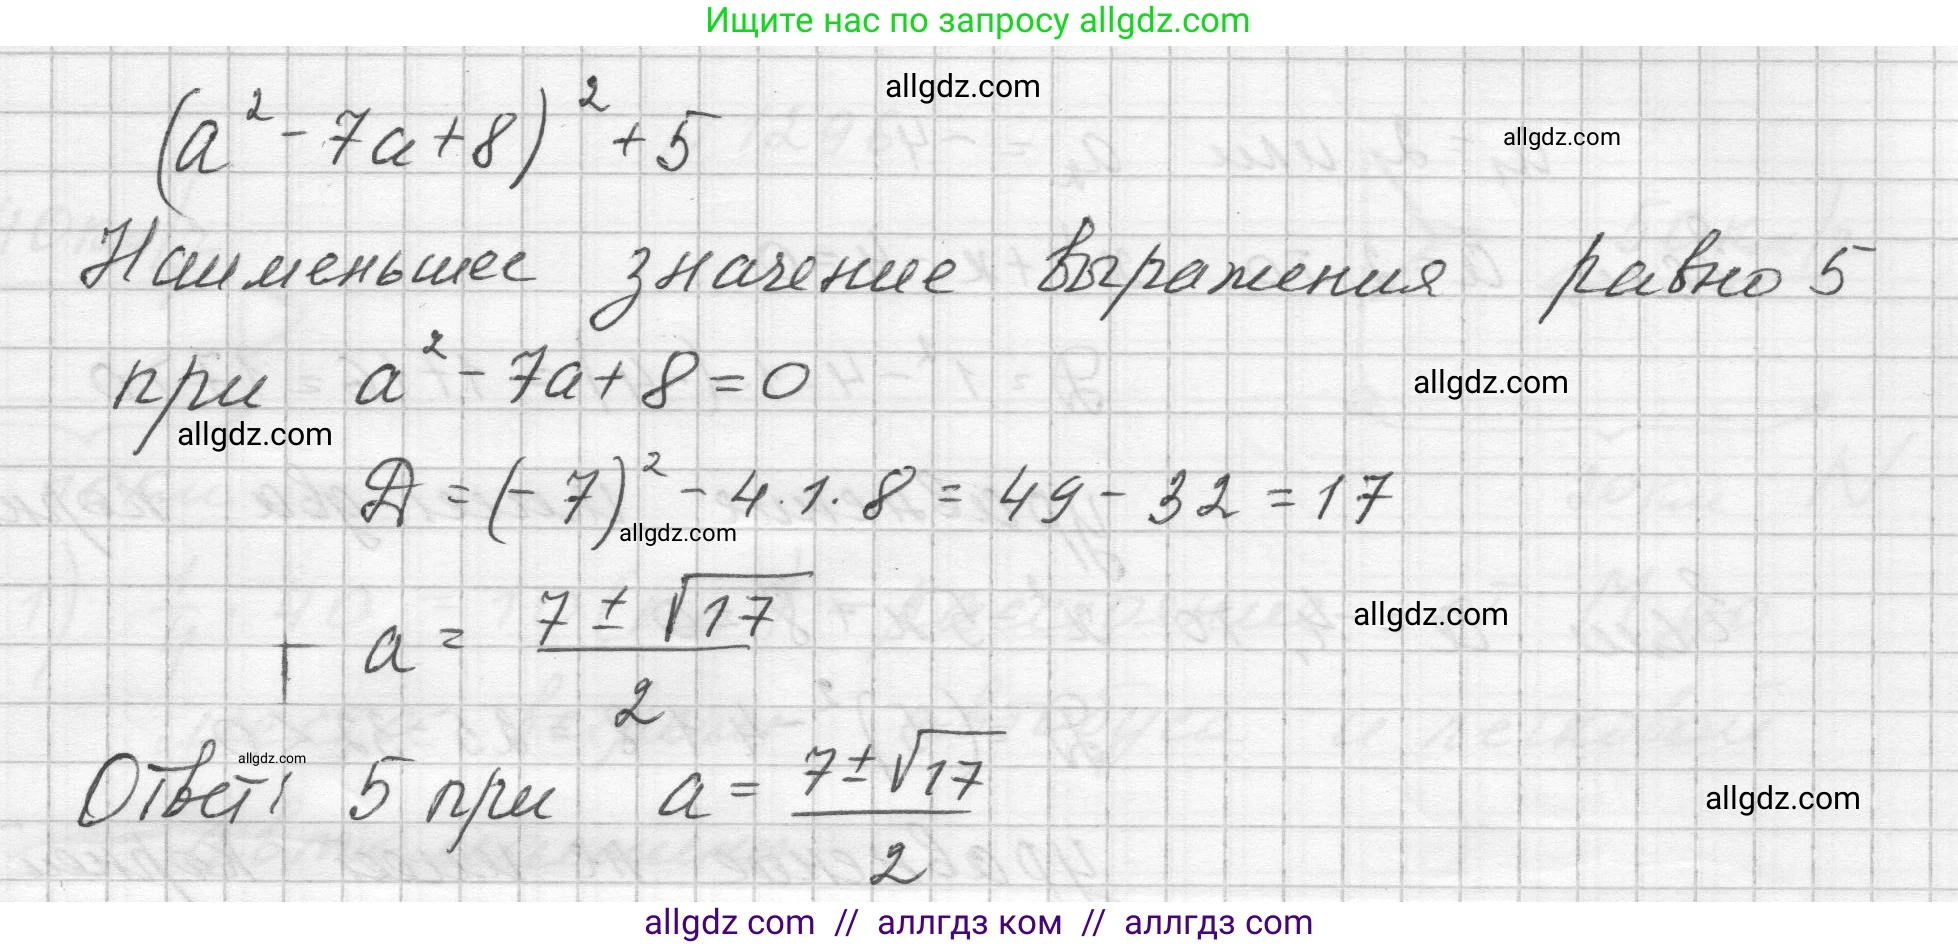 Ищите нас по запросу allgdz.com
(a² - 7a + 8)² + 5
allgdz.com
allgdz.com
Наименьшее значение выражения равно 5
при a² - 7a + 8 = 0
allgdz.com
allgdz.com
Д = (-7)² - 4·1·8 = 49 - 32 = 17
allgdz.com
a = (7 ± √17)/2
allgdz.com
Ответ: 5 при a = (7 ± √17)/2
allgdz.com
allgdz.com
allgdz com // аллгдз ком // аллгдз com